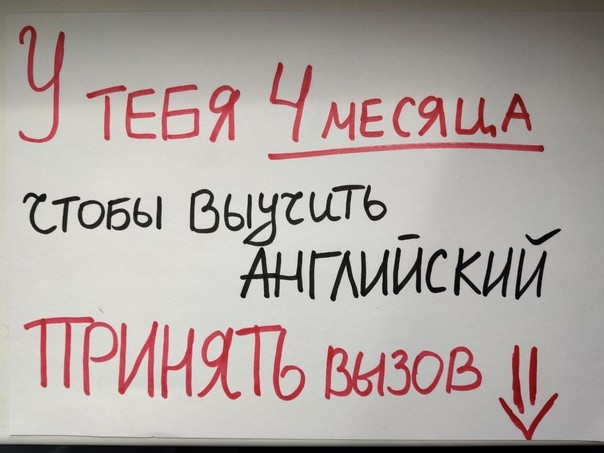 У ТЕБЯ 4 МЕСЯЦА
ЧТОБЫ ВЫУЧИТЬ
АНГЛИЙСКИЙ
ПРИНЯТЬ ВЫЗОВ